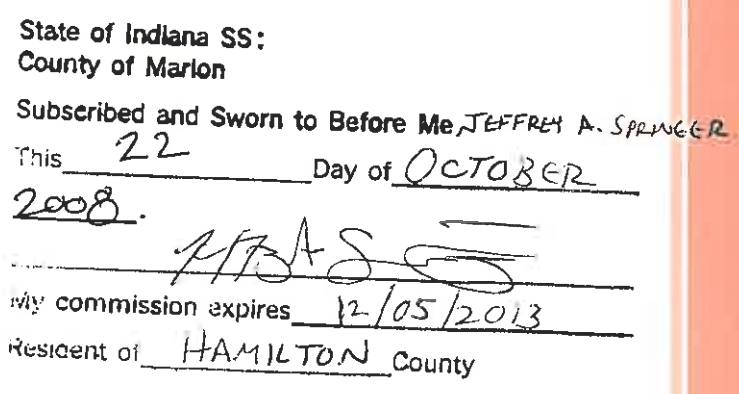 State of Indiana SS:
County of Marion
Subscribed and Sworn to Before Me, JEFFREY A. SPRINGER
This 22 Day of OCTOBER
2008.
My commission expires 12/05/2013
Resident of HAMILTON County